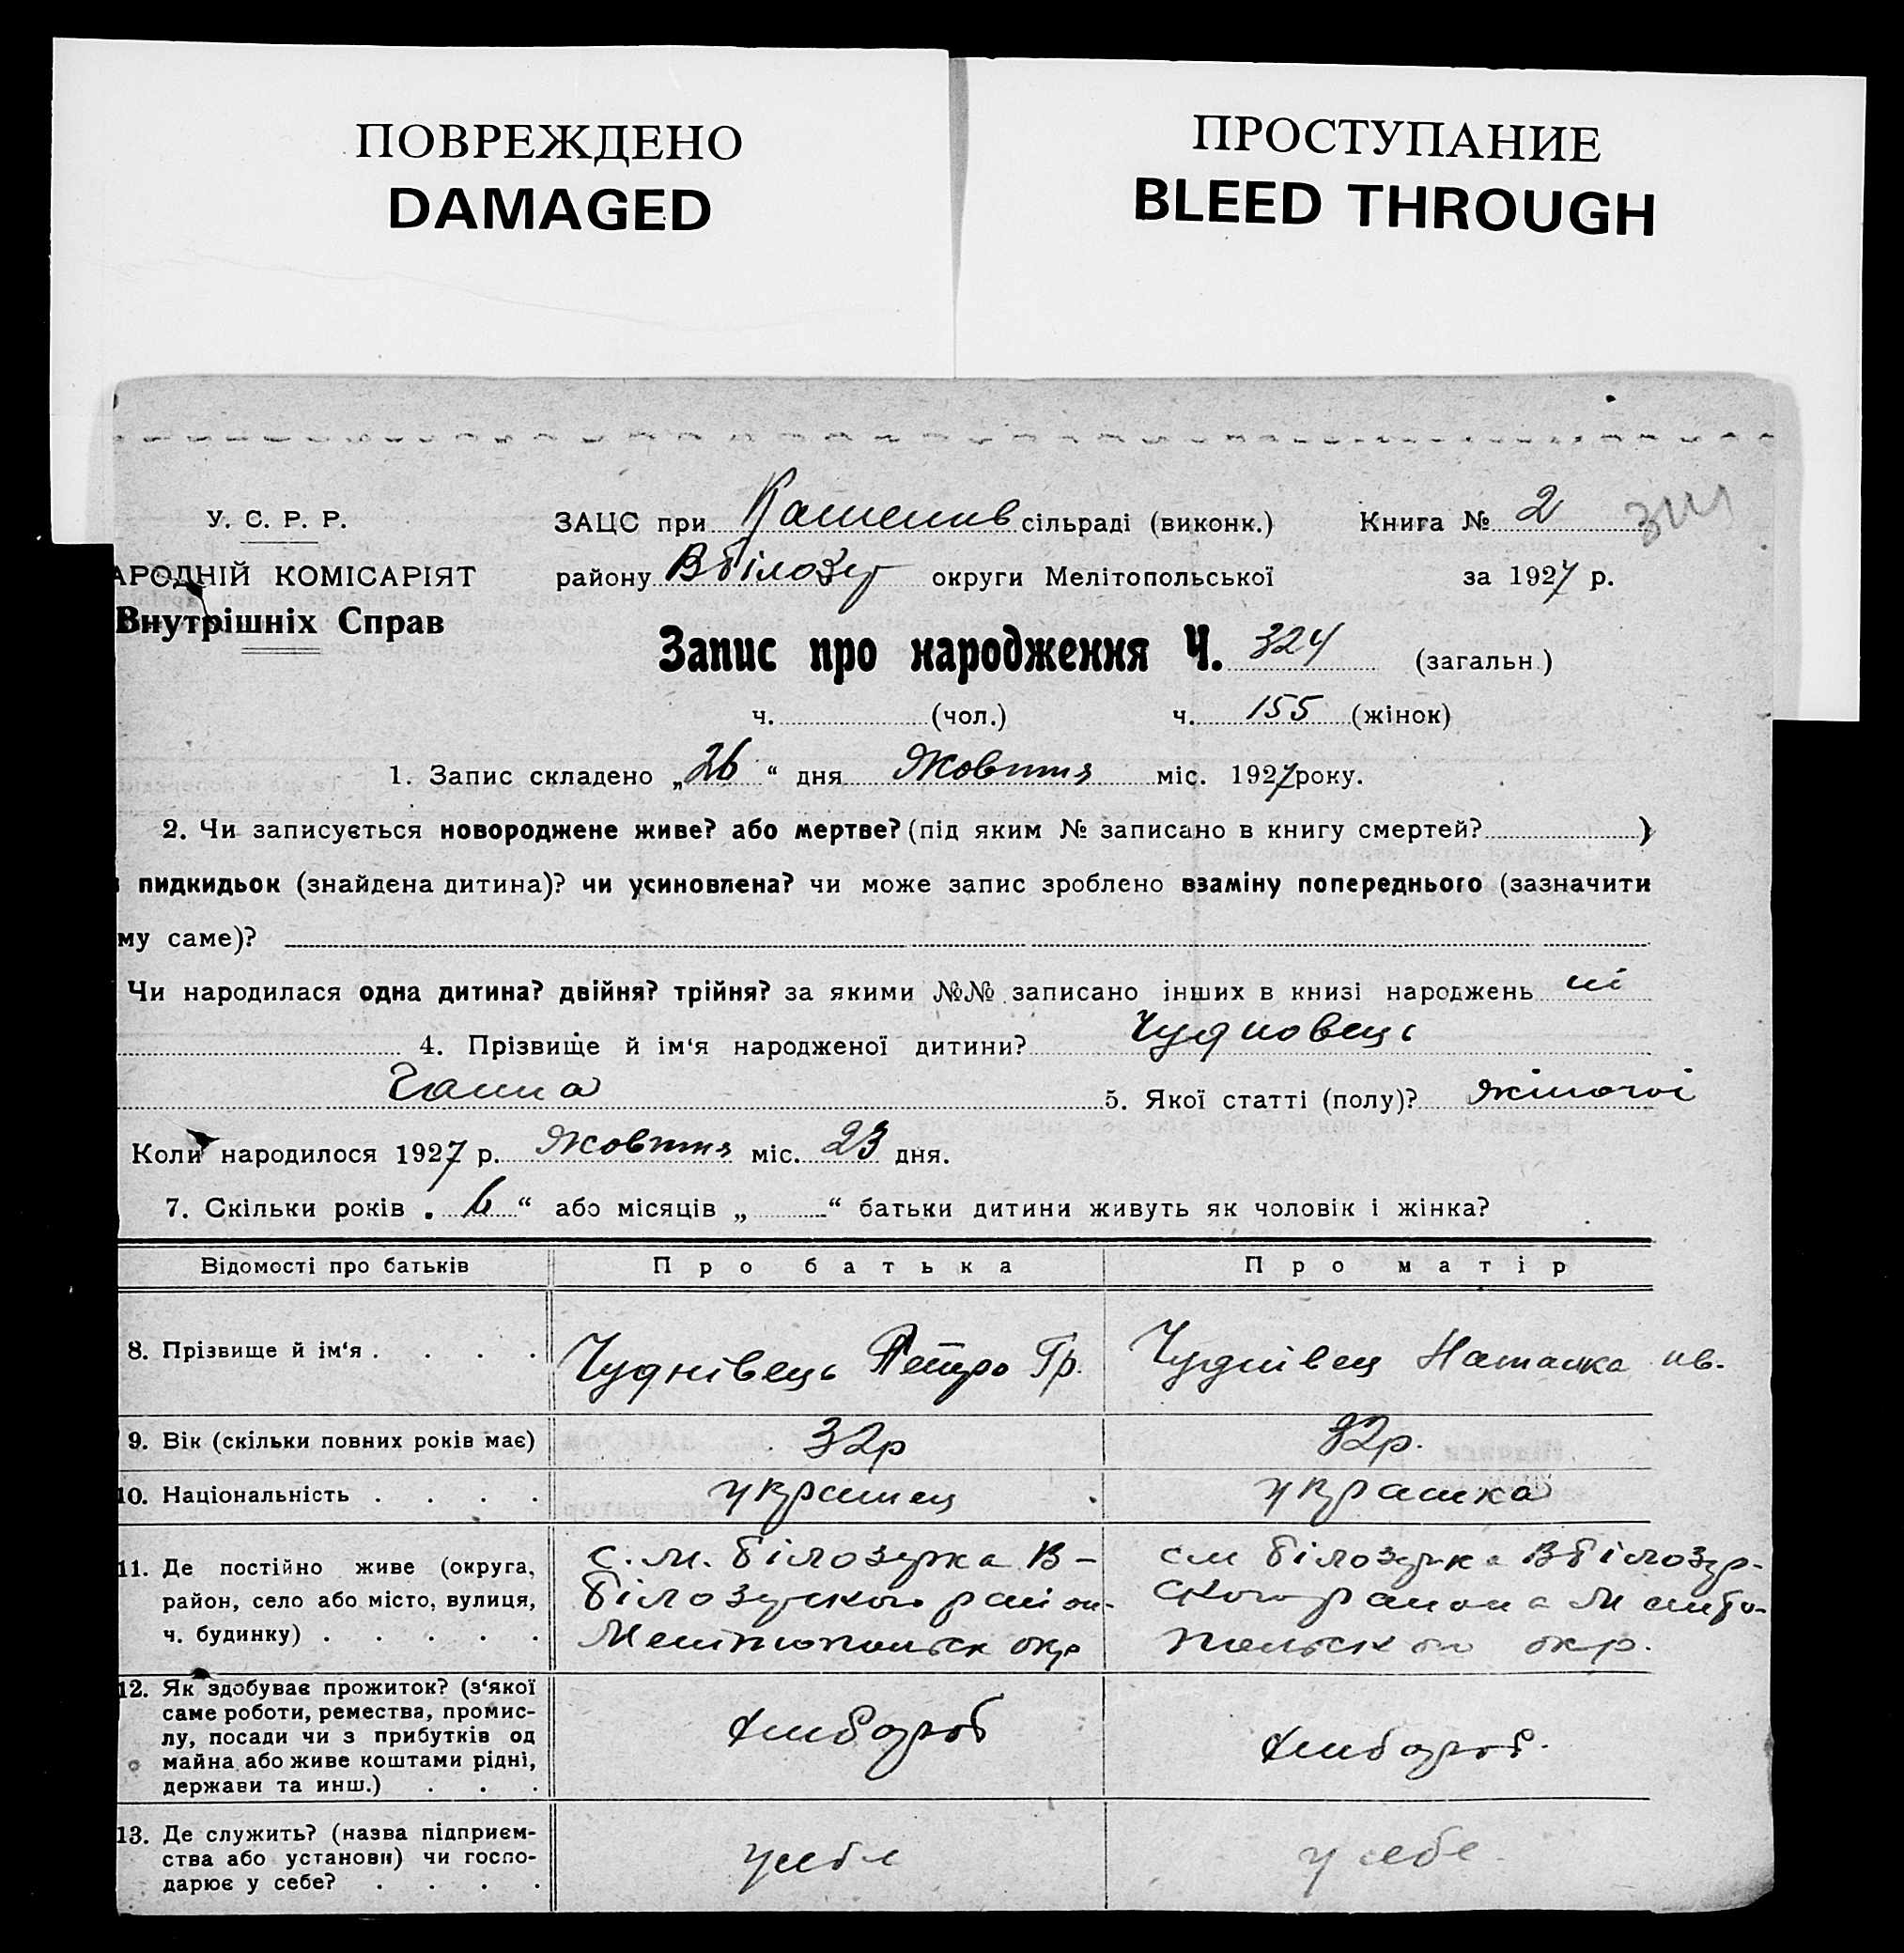 ПОВРЕЖДЕНО
DAMAGED
ПРОСТУПАНИЕ
BLEED THROUGH
У. С. Р. Р.
ЗАЦС при сільраді (виконк.) Книга № 2
АРОДНІЙ КОМІСАРІЯТ
району В білозер округи Мелітопольської за 1927 р.
Внутрішніх Справ
Запис про народження Ч. 324 (загальн.)
ч. (чол.) ч. 155 (жінок)
1. Запис складено „26“ дня Жовтня міс. 1927 року.
2. Чи записується новороджене живе? або мертве? (під яким № записано в книгу смертей? )
пидкидьок (знайдена дитина)? чи усиновлена? чи може запис зроблено взаміну попереднього (зазначити
му саме)?
Чи народилася одна дитина? двійня? трійня? за якими №№ записано інших в книзі народжень ні
4. Прізвище й ім‘я народженої дитини? Чудновець
Ганна 5. Якої статті (полу)? жіночої
Коли народилося 1927 р. Жовтня міс. 23 дня.
7. Скільки років „ 6 “ або місяців „ “ батьки дитини живуть як чоловік і жінка?
Відомості про батьків Про батька Про матір
8. Прізвище й ім‘я . . . . Чуднівець Петро Гр. Чуднівец Наталка ив.
9. Вік (скільки повних років має) 32р 32р.
10. Національність . . . . украинец украинка
11. Де постійно живе (округа, с. М. білозурка В- см білозурка В білозур-
район, село або місто, вулиця, білозурского район- ского района Мелито-
ч. будинку) . . . . . Мелитопольск окр польского окр.
12. Як здобуває прожиток? (з‘якої
саме роботи, ремества, промис-
лу, посади чи з прибутків од хлибороб хлибороб.
майна або живе коштами рідні,
держави та инш.) . . .
13. Де служить? (назва підприєм-
ства або установи) чи госпо- у себе у себе
дарює у себе? . . . .